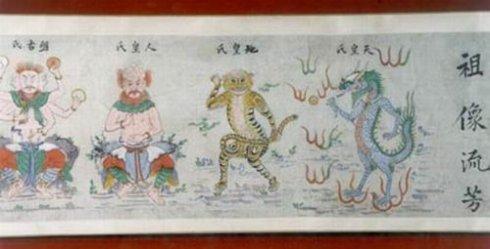 祖像流芳
天皇氏
地皇氏
人皇氏
盤古氏